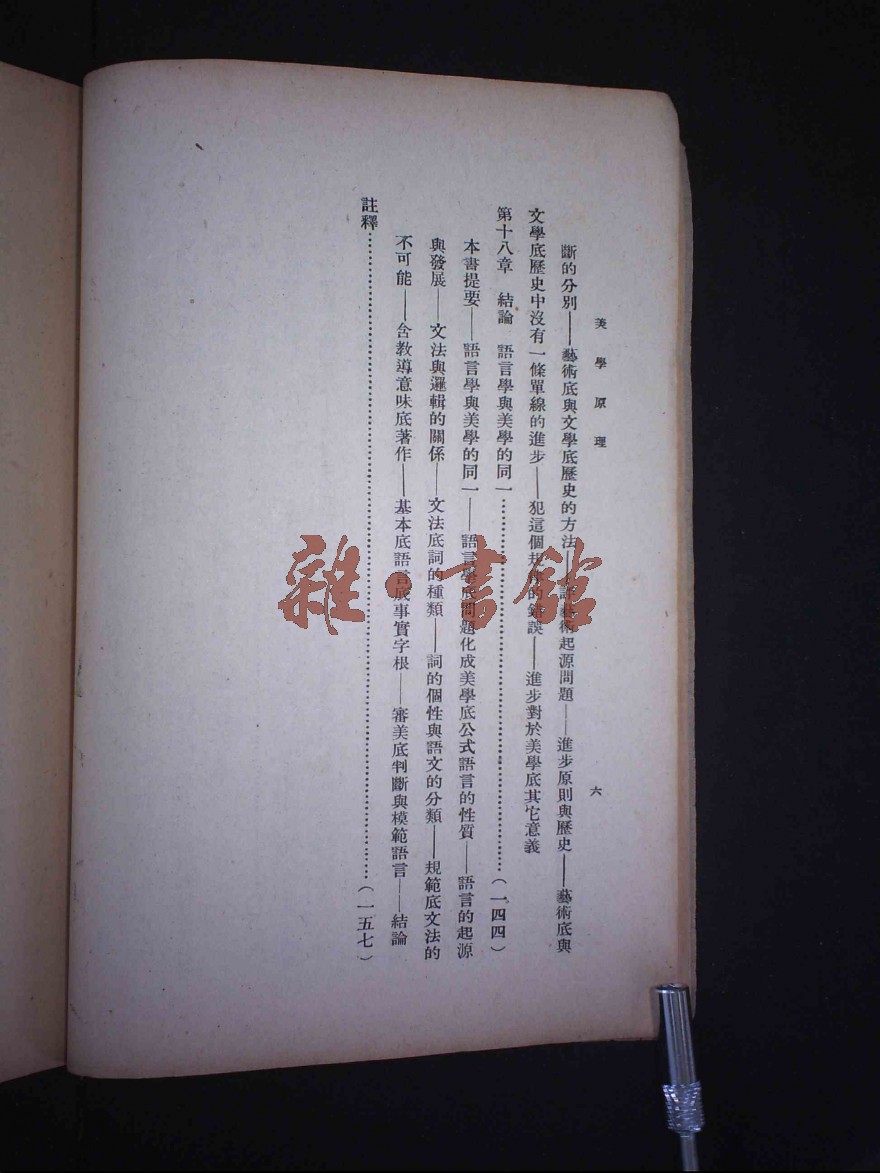 美學原理
六
斷的分別——藝術底與文學底歷史的方法——評藝術起源問題——進步原則與歷史——藝術底與
文學底歷史中沒有一條單線的進步——犯這個規律的錯誤——進步對於美學底其它意義
第十八章　結論　語言學與美學的同一……(一四四)
本書提要——語言學與美學的同一——語言學底問題化成美學底公式語言的性質——語言的起源
與發展——文法與邏輯的關係——文法底詞的種類——詞的個性與語文的分類——規範底文法的
不可能——含教導意味底著作——基本底語言底事實字根——審美底判斷與模範語言——結論
註釋……(一五七)
雜·書館